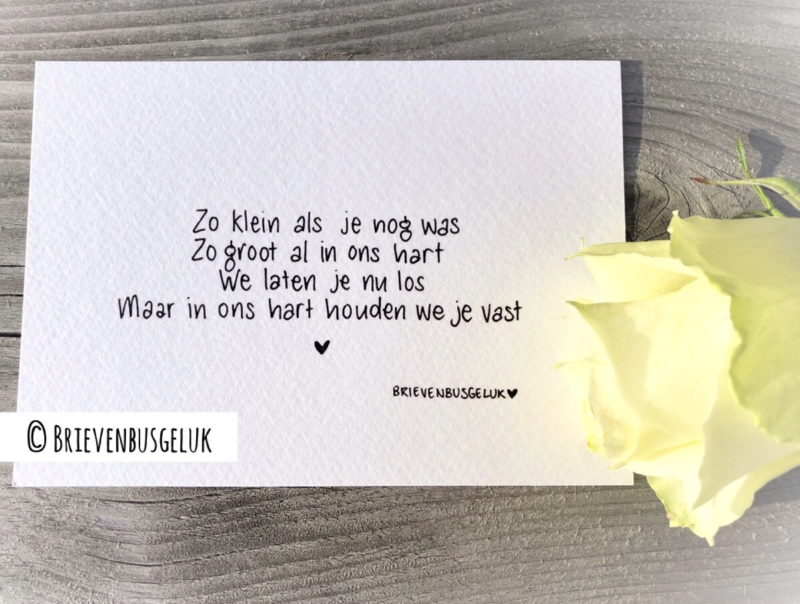 Zo klein als je nog was
Zo groot al in ons hart
We laten je nu los
Maar in ons hart houden we je vast
BRIEVENBUSGELUK♥
© BRIEVENBUSGELUK